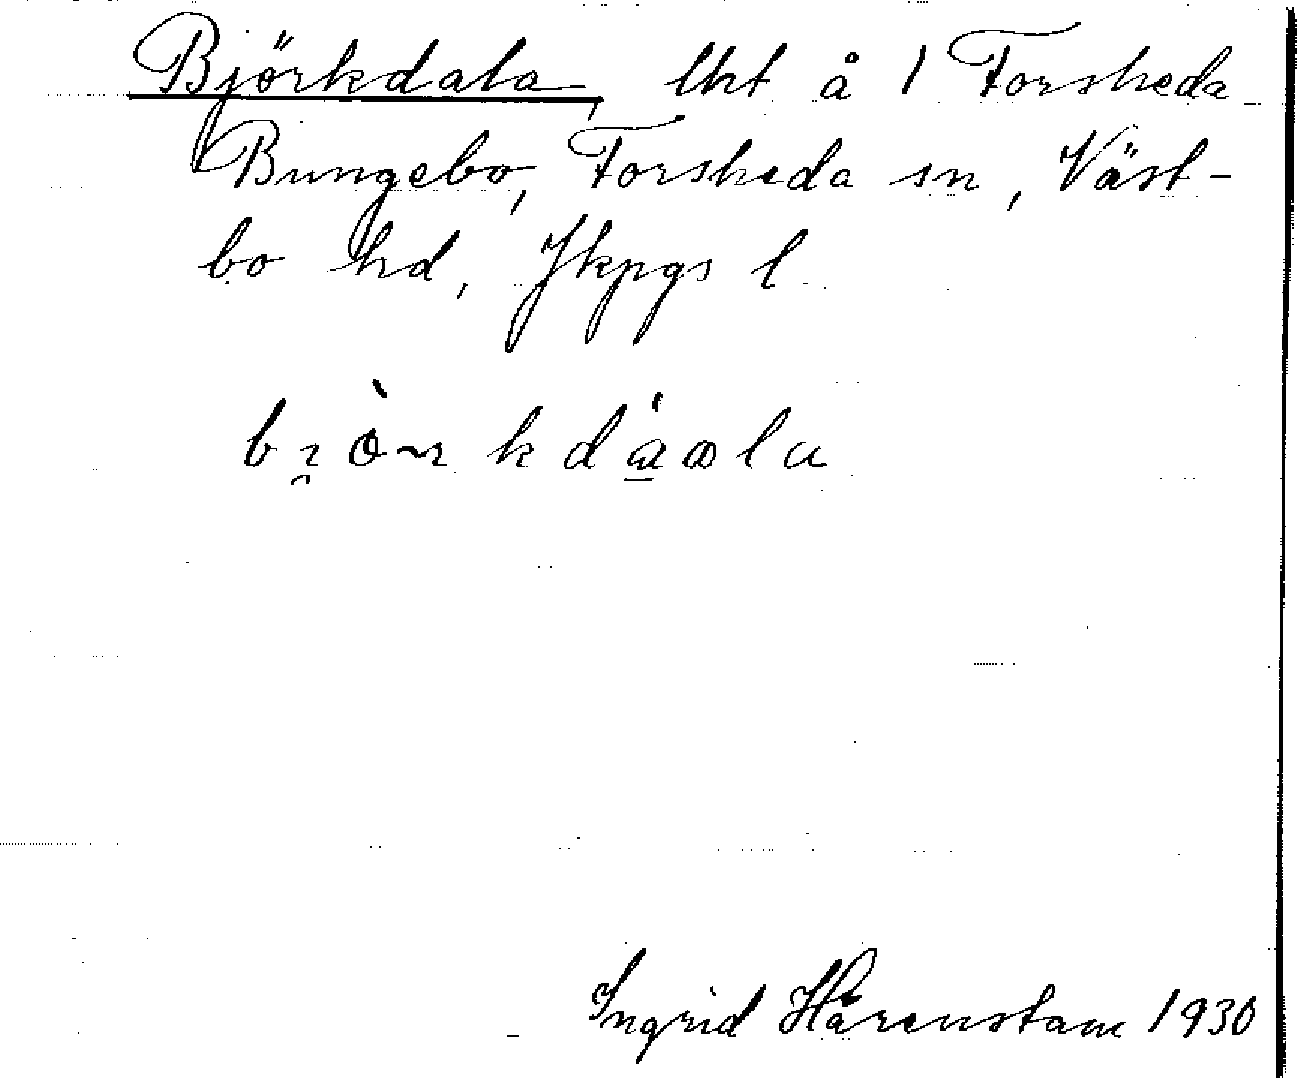 Björkdala, lht å 1 Forsheda
Bungebo, Forsheda sn, Väst-
bo hd, Jkpgs l
Ingrid Hårenstam 1930